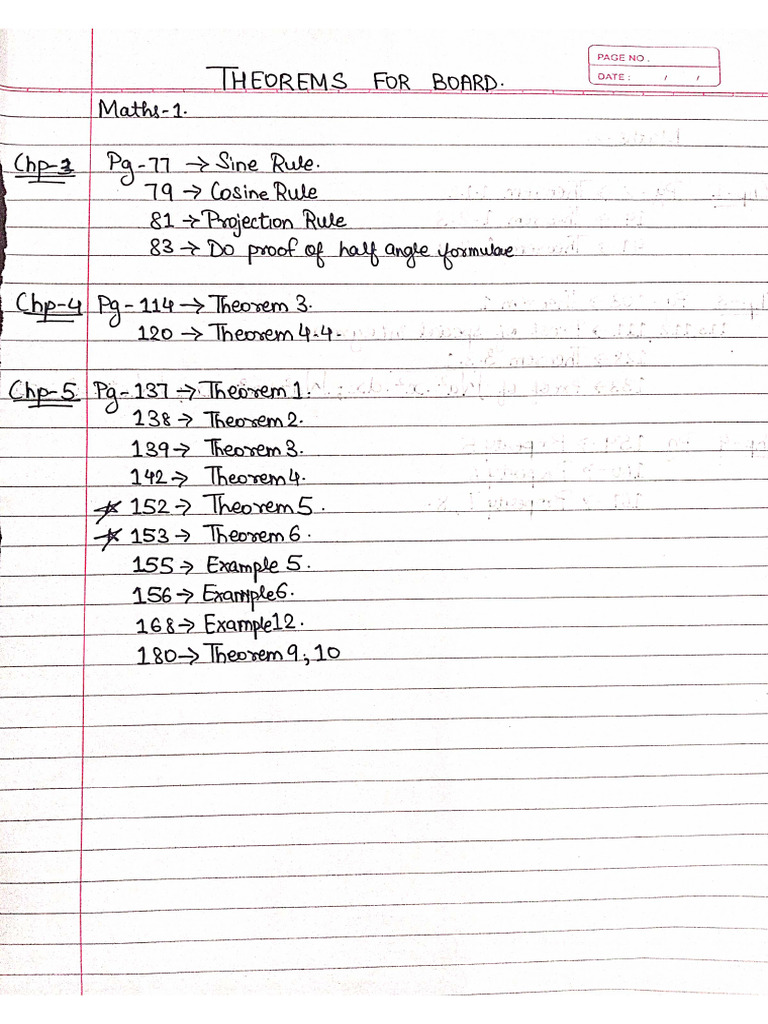 THEOREMS FOR BOARD.
PAGE NO.
DATE: / /
Maths-1.
Chp-3 Pg-77 → Sine Rule.
79 → Cosine Rule
81 → Projection Rule
83 → Do proof of half angle formulae
Chp-4 Pg-114 → Theorem 3.
120 → Theorem 4.4
Chp-5 Pg-137 → Theorem 1.
138 → Theorem 2.
139 → Theorem 3.
142 → Theorem 4.
★ 152 → Theorem 5.
★ 153 → Theorem 6.
155 → Example 5.
156 → Example 6.
168 → Example 12.
180 → Theorem 9, 10